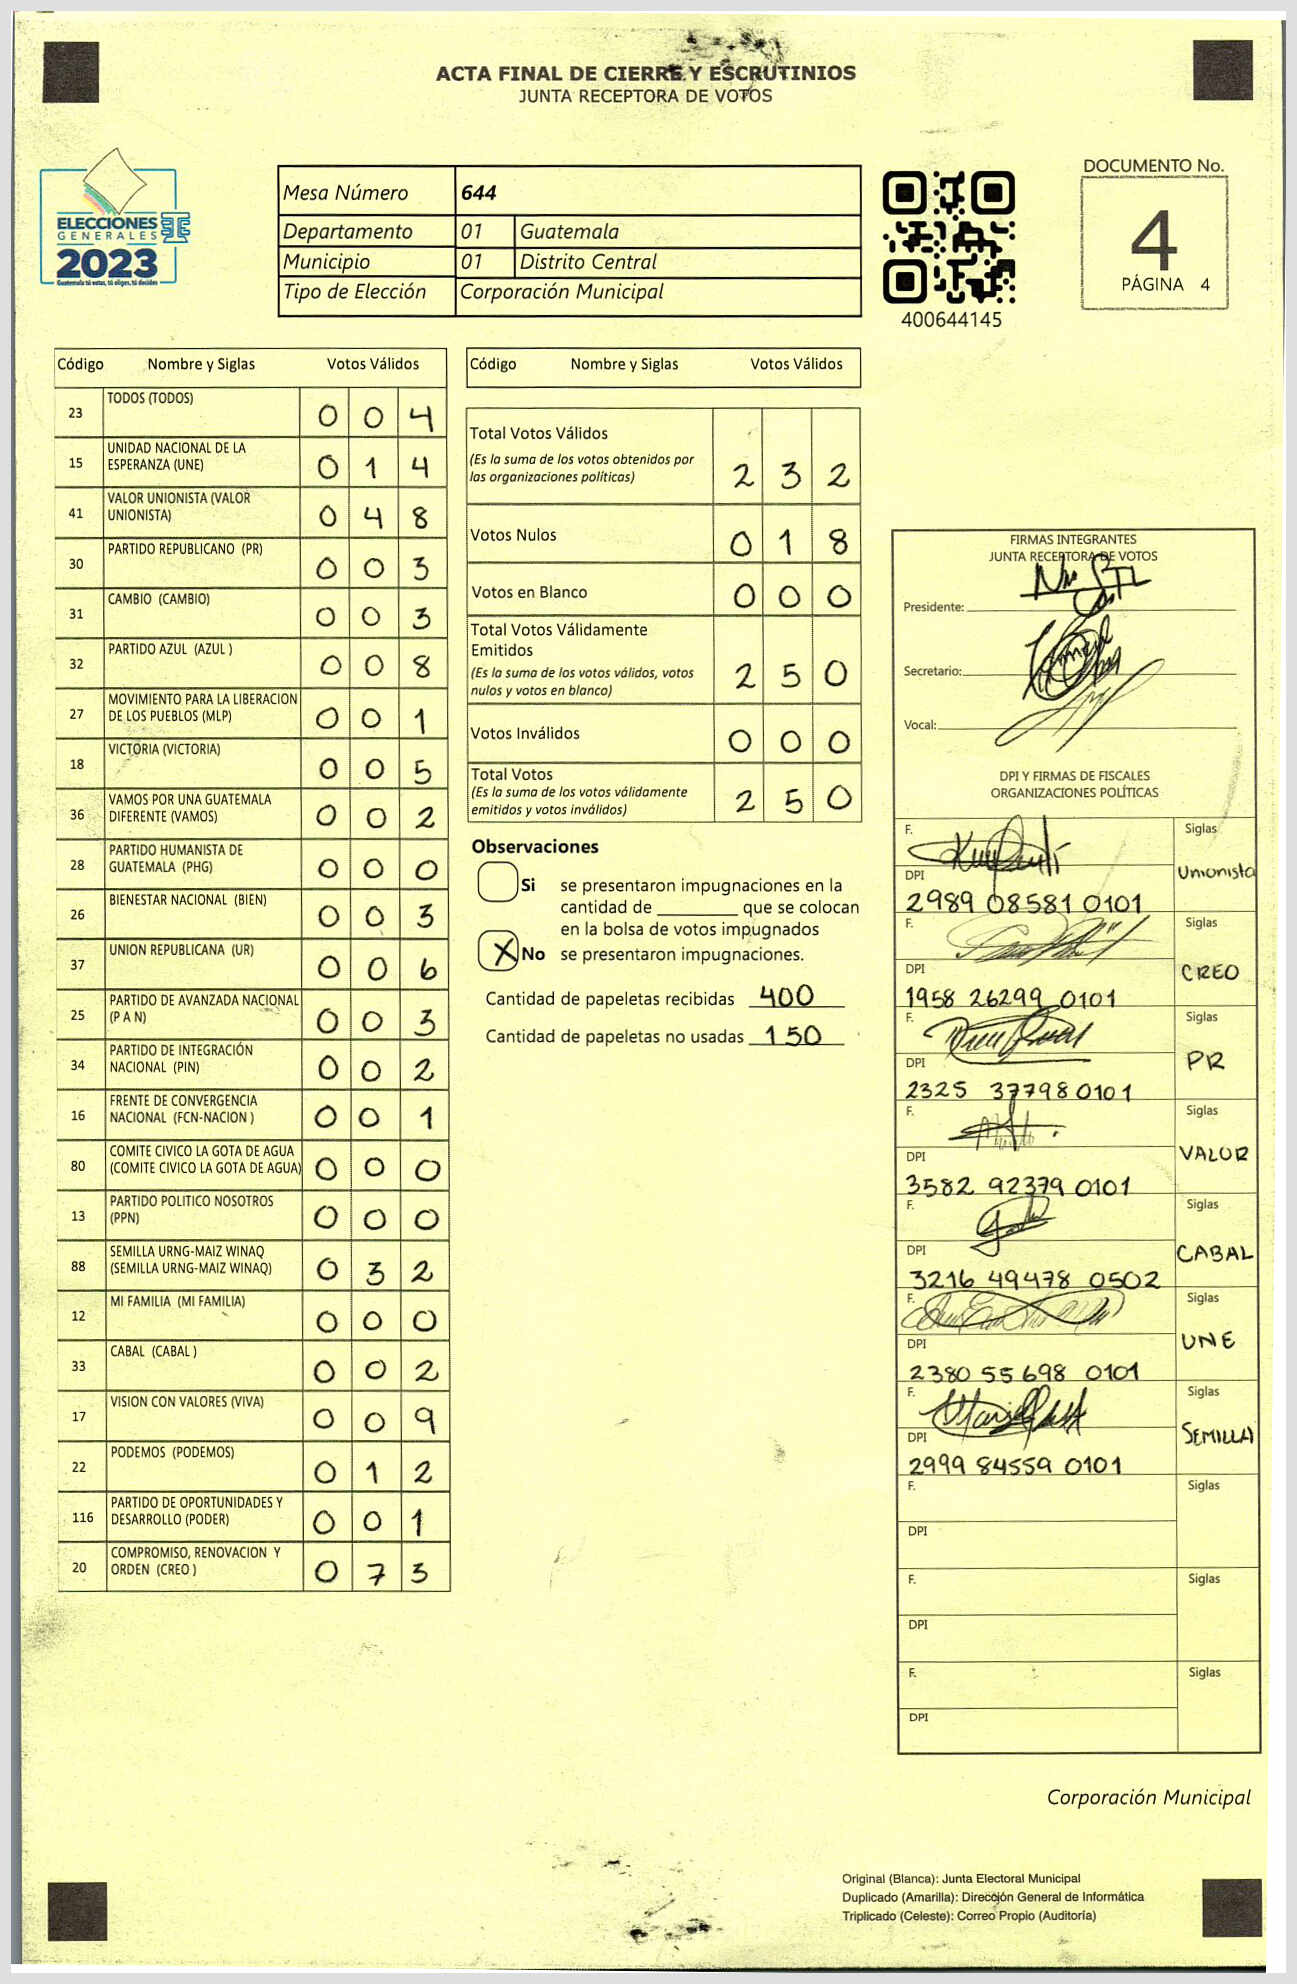 ACTA FINAL DE CIERRE Y ESCRUTINIOS
JUNTA RECEPTORA DE VOTOS
ELECCIONES
GENERALES
2023
Guatemala tú votas, tú eliges, tú decides
Mesa Número 644
Departamento 01 Guatemala
Municipio 01 Distrito Central
Tipo de Elección Corporación Municipal
400644145
DOCUMENTO No.
4
PÁGINA 4
Código Nombre y Siglas Votos Válidos
23 TODOS (TODOS) 0 0 4
15 UNIDAD NACIONAL DE LA
ESPERANZA (UNE) 0 1 4
41 VALOR UNIONISTA (VALOR
UNIONISTA) 0 4 8
30 PARTIDO REPUBLICANO (PR) 0 0 3
31 CAMBIO (CAMBIO) 0 0 3
32 PARTIDO AZUL (AZUL ) 0 0 8
27 MOVIMIENTO PARA LA LIBERACION
DE LOS PUEBLOS (MLP) 0 0 1
18 VICTORIA (VICTORIA) 0 0 5
36 VAMOS POR UNA GUATEMALA
DIFERENTE (VAMOS) 0 0 2
28 PARTIDO HUMANISTA DE
GUATEMALA (PHG) 0 0 0
26 BIENESTAR NACIONAL (BIEN) 0 0 3
37 UNION REPUBLICANA (UR) 0 0 6
25 PARTIDO DE AVANZADA NACIONAL
(P A N) 0 0 3
34 PARTIDO DE INTEGRACIÓN
NACIONAL (PIN) 0 0 2
16 FRENTE DE CONVERGENCIA
NACIONAL (FCN-NACION ) 0 0 1
80 COMITE CIVICO LA GOTA DE AGUA
(COMITE CIVICO LA GOTA DE AGUA) 0 0 0
13 PARTIDO POLITICO NOSOTROS
(PPN) 0 0 0
88 SEMILLA URNG-MAIZ WINAQ
(SEMILLA URNG-MAIZ WINAQ) 0 3 2
12 MI FAMILIA (MI FAMILIA) 0 0 0
33 CABAL (CABAL ) 0 0 2
17 VISION CON VALORES (VIVA) 0 0 9
22 PODEMOS (PODEMOS) 0 1 2
116 PARTIDO DE OPORTUNIDADES Y
DESARROLLO (PODER) 0 0 1
20 COMPROMISO, RENOVACION Y
ORDEN (CREO ) 0 7 3
Código Nombre y Siglas Votos Válidos
Total Votos Válidos
(Es la suma de los votos obtenidos por
las organizaciones políticas) 2 3 2
Votos Nulos 0 1 8
Votos en Blanco 0 0 0
Total Votos Válidamente
Emitidos
(Es la suma de los votos válidos, votos
nulos y votos en blanco) 2 5 0
Votos Inválidos 0 0 0
Total Votos
(Es la suma de los votos válidamente
emitidos y votos inválidos) 2 5 0
Observaciones
Si se presentaron impugnaciones en la
cantidad de ________ que se colocan
en la bolsa de votos impugnados
X No se presentaron impugnaciones.
Cantidad de papeletas recibidas 400
Cantidad de papeletas no usadas 150
FIRMAS INTEGRANTES
JUNTA RECEPTORA DE VOTOS
Presidente:
Secretario:
Vocal:
DPI Y FIRMAS DE FISCALES
ORGANIZACIONES POLÍTICAS
F. Siglas
DPI Unionista
2989 08581 0101
F. Siglas
DPI CREO
1958 26299 0101
F. Siglas
DPI PR
2325 37798 0101
F. Siglas
DPI VALOR
3582 92379 0101
F. Siglas
DPI CABAL
3216 49478 0502
F. Siglas
DPI UNE
2380 55698 0101
F. Siglas
DPI SEMILLA
2999 84559 0101
F. Siglas
DPI
F. Siglas
DPI
F. Siglas
DPI
Corporación Municipal
Original (Blanca): Junta Electoral Municipal
Duplicado (Amarilla): Dirección General de Informática
Triplicado (Celeste): Correo Propio (Auditoría)